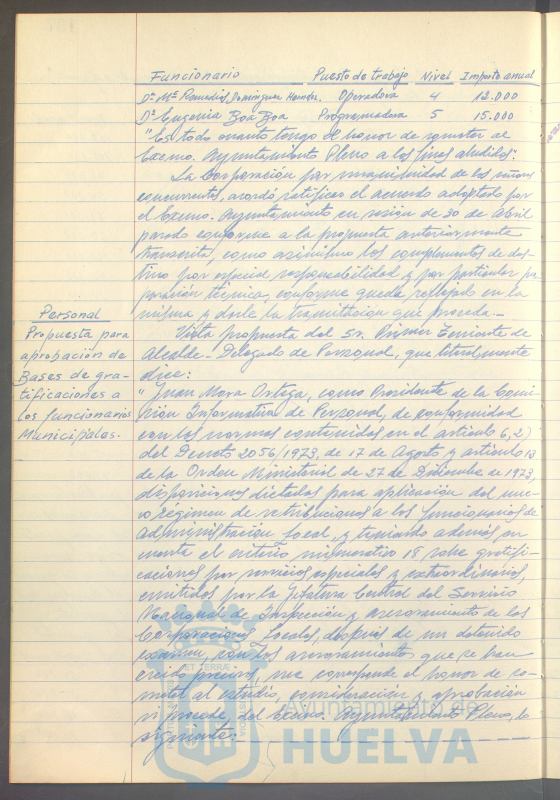 Funcionario Puesto de trabajo Nivel Importe anual
Dª Mª Remedios Domínguez Hernández. Operadora 4 12.000
Dª Eugenia Boa Boa Programadora 5 15.000
"Es todo cuanto tengo el honor de someter al
Excmo. Ayuntamiento Pleno a los fines aludidos".
La Corporación por unanimidad de los señores
concurrentes, acordó ratificar el acuerdo adoptado por
el Excmo. Ayuntamiento en sesión de 30 de Abril
pasado conforme a la propuesta anteriormente
transcrita, como asimismo los complementos de des-
tino por especial responsabilidad y por particular pre
paración técnica, conforme queda reflejado en la
misma y darle la tramitación que proceda.-
Personal
Propuesta para
aprobación de
Bases de gra-
tificaciones a
los funcionarios
Municipales.
Vista propuesta del Sr. Primer Teniente de
Alcalde-Delegado de Personal, que literalmente
dice:
"Juan Mora Ortega, como Presidente de la Comi-
sión Informativa de Personal, de conformidad
con las normas contenidas en el artículo 6, 2)
del Decreto 2056/1973, de 17 de Agosto y artículo 13
de la Orden Ministerial de 27 de Diciembre de 1973,
disposiciones dictadas para aplicación del nue-
vo régimen de retribuciones a los funcionarios de
administración local, y teniendo además, en
cuenta el criterio numerativo 18 sobre gratifi-
caciones por servicios especiales y extraordinarios,
emitidos por la Jefatura Central del Servicio
Nacional de Inspección y asesoramiento de las
Corporaciones Locales, después de un detenido
examen, con los asesoramientos que se han
creido precisos, me corresponde el honor de so-
meter al estudio, consideración y aprobación
si procede, del Excmo. Ayuntamiento Pleno, lo
siguiente:
Ayuntamiento de
HUELVA